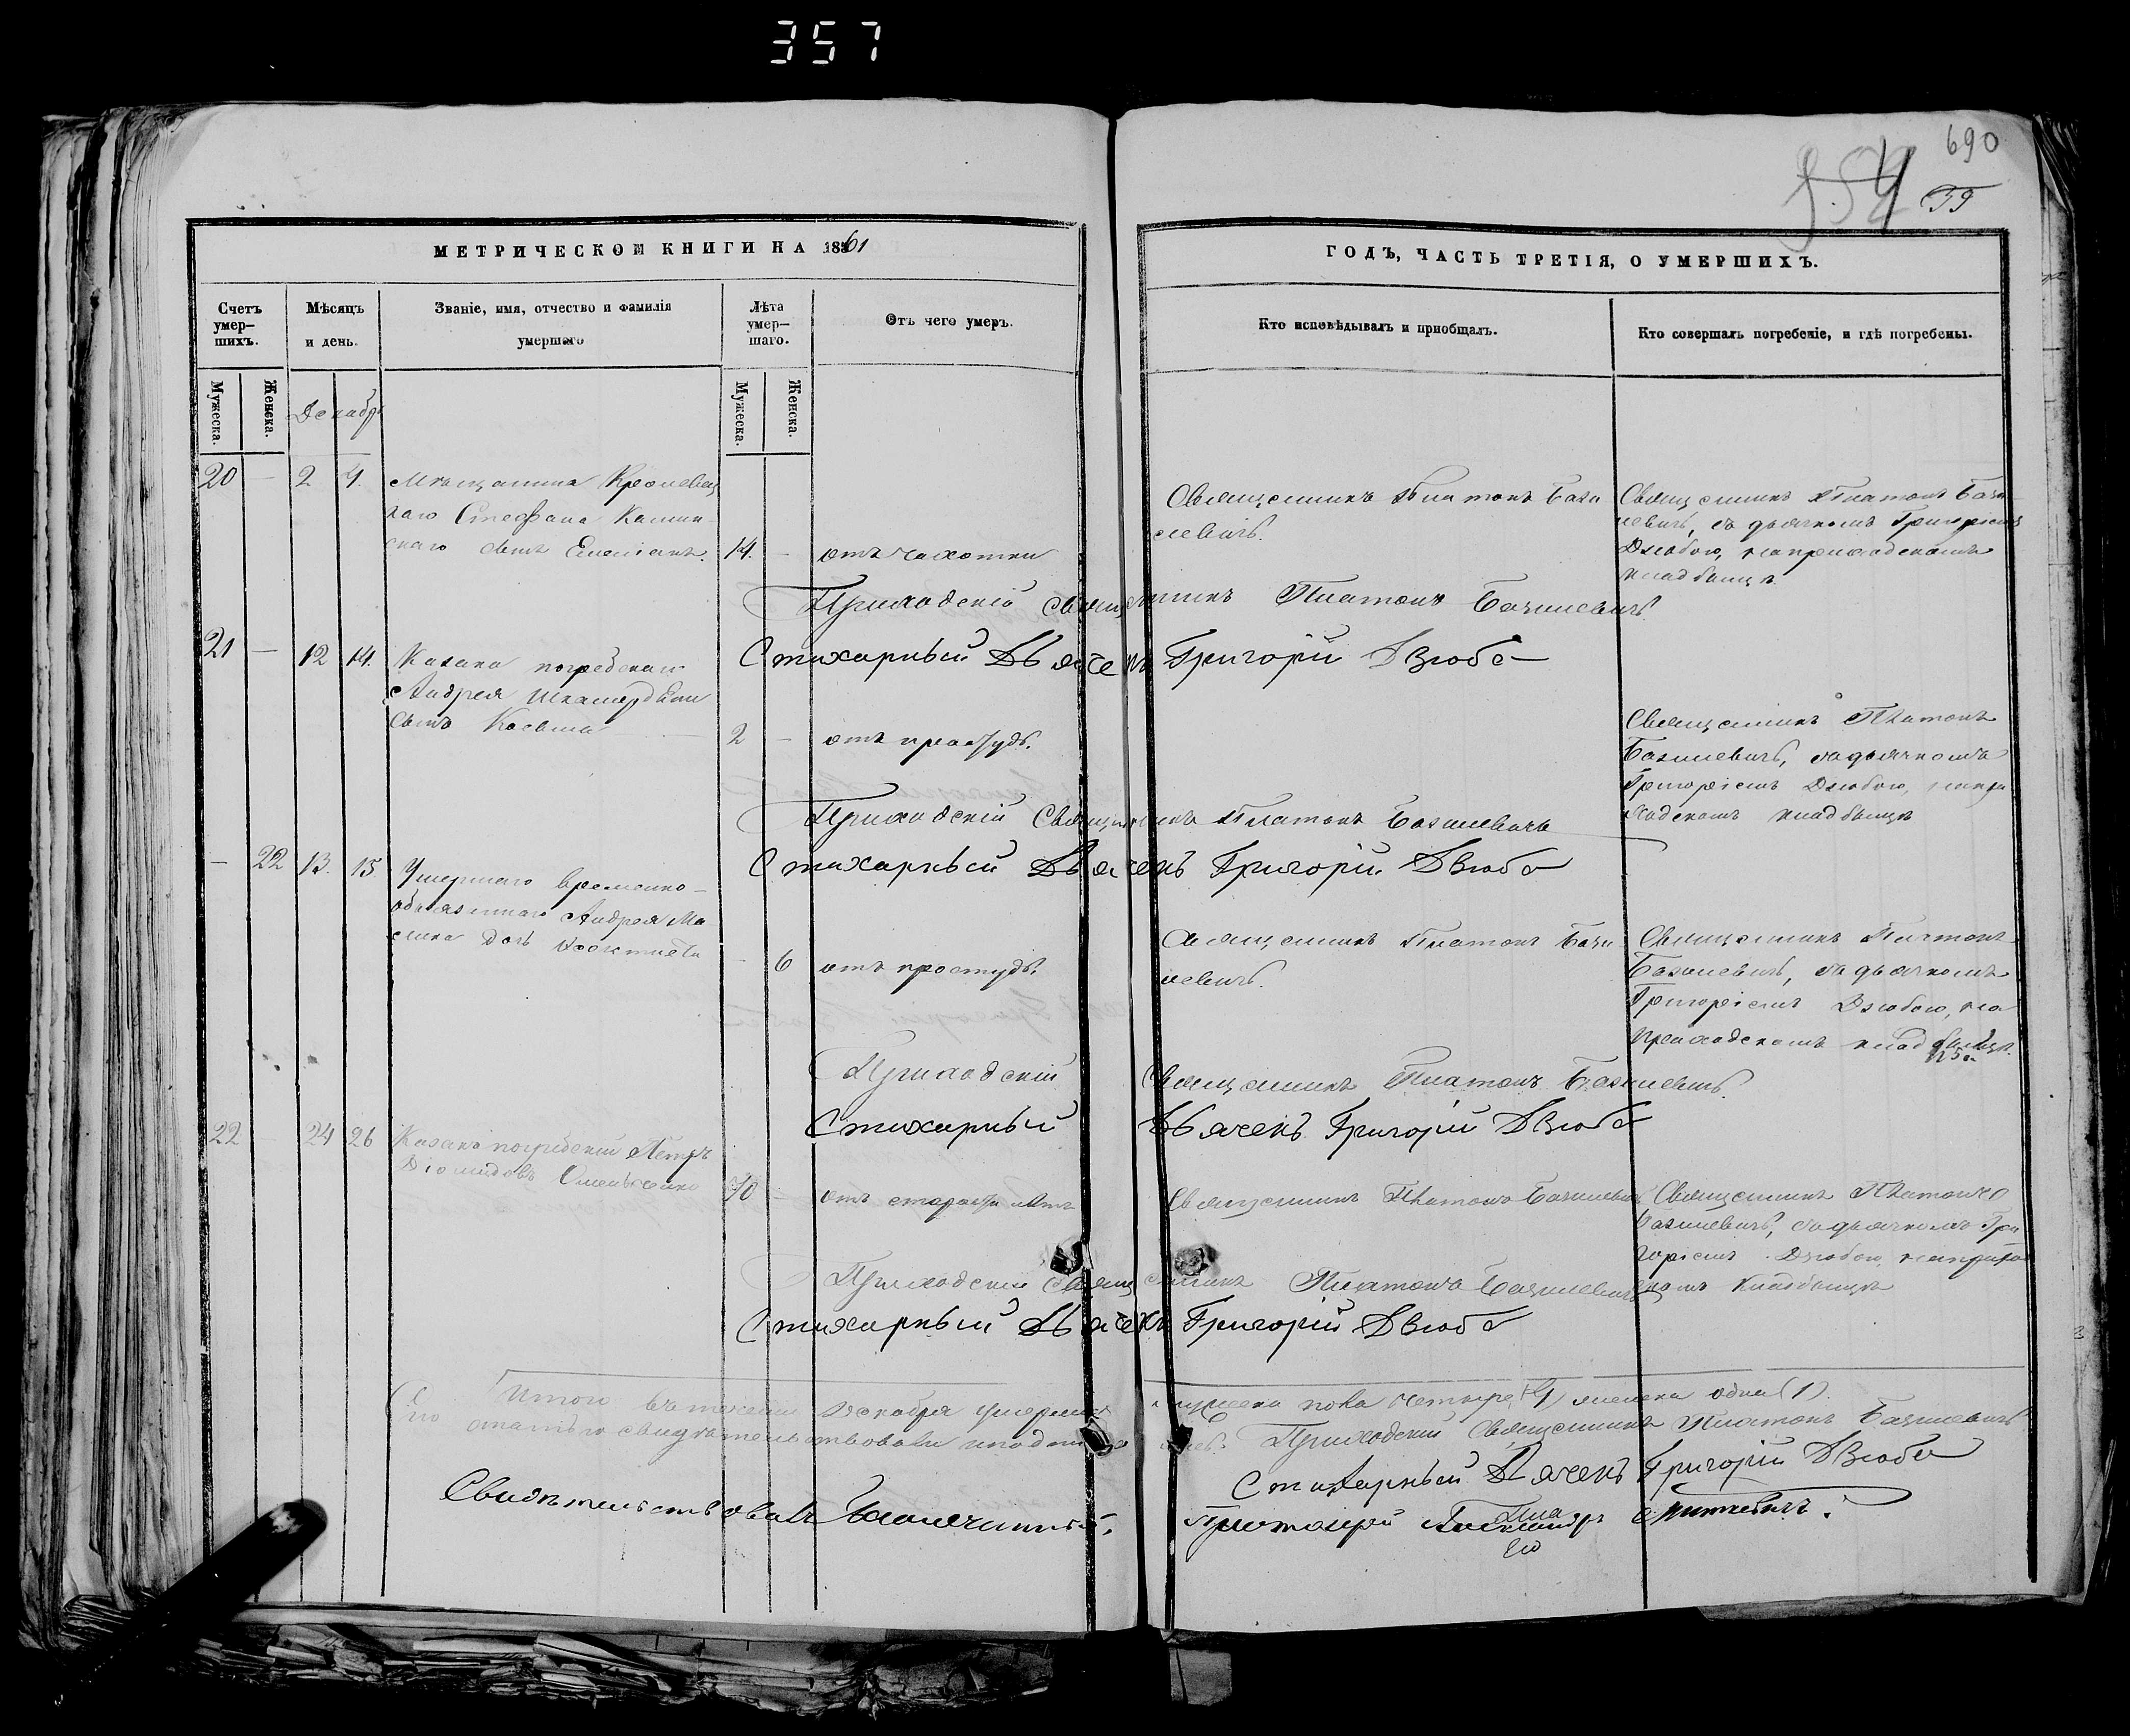 357
690
МЕТРИЧЕСКОЙ КНИГИ НА 1861
ГОДЪ, ЧАСТЬ ТРЕТІЯ, О УМЕРШИХЪ.
Счетъ умер-шихъ.
Мѣсяцъ и день.
Званіе, имя, отчество и фамилія умершаго
Лѣта умер-шаго.
Отъ чего умеръ.
Кто исповѣдывалъ и пріобщалъ.
Кто совершалъ погребеніе, и гдѣ погребены.
Мужеска.
Женска.
Декабрь
Мужеска.
Женска.
20 — 2 4.
Мѣщанина Кролевец
каго Стефана Камин
скаго сынъ Емеліанъ.
14. — отъ чахотки
Священникъ Платонъ Бази
левичъ.
Священникъ Платонъ Бази
левичъ, съ дьячкомъ Григоріемъ
Дзюбою, на приходскомъ
кладбищѣ.
Приходскій священникъ Платонъ Базилевичъ.
Стихарный Дьячекъ Григорій Дзюба
21 — 12 14.
Казака погребскаго
Андрея
сынъ Косьма
2 — отъ простуды.
Священникъ Платонъ
Базилевичъ, съ дьячкомъ
Григоріемъ Дзюбою, на при
ходскомъ кладбищѣ
Приходскій Священникъ Платонъ Базилевичъ
Стихарный Дьячекъ Григорій Дзюба
— 22 13. 15.
Умершаго временно-
обязаннаго Андрея Ма
дочь
— 6 отъ простуды.
Священникъ Платонъ Бази
левичъ.
Священникъ Платонъ
Базилевичъ, съ дьячкомъ
Григоріемъ Дзюбою, на
приходскомъ кладбищѣ.
Приходскій Священникъ Платонъ Базилевичъ.
Стихарный Дьячекъ Григорій Дзюба
22 24 26
Казакъ погребскій Петръ
Діомидовъ Омельченко
70 — отъ старости лѣтъ
Священникъ Платонъ Базилевичъ
Священникъ Платонъ
Базилевичъ, съ дьячкомъ Гри
горіемъ Дзюбою, на приход
скомъ кладбищѣ
Приходскій Священникъ Платонъ Базилевичъ
Стихарный Дьячекъ Григорій Дзюба
Итого въ теченіи декабря умерло мужеска пола четыре (4) женска одна (1).
Приходскій Священникъ Платонъ Базилевичъ
Стихарный Дьячекъ Григорій Дзюба
Свидѣтельствовалъ Благочинный,
Протоіерей